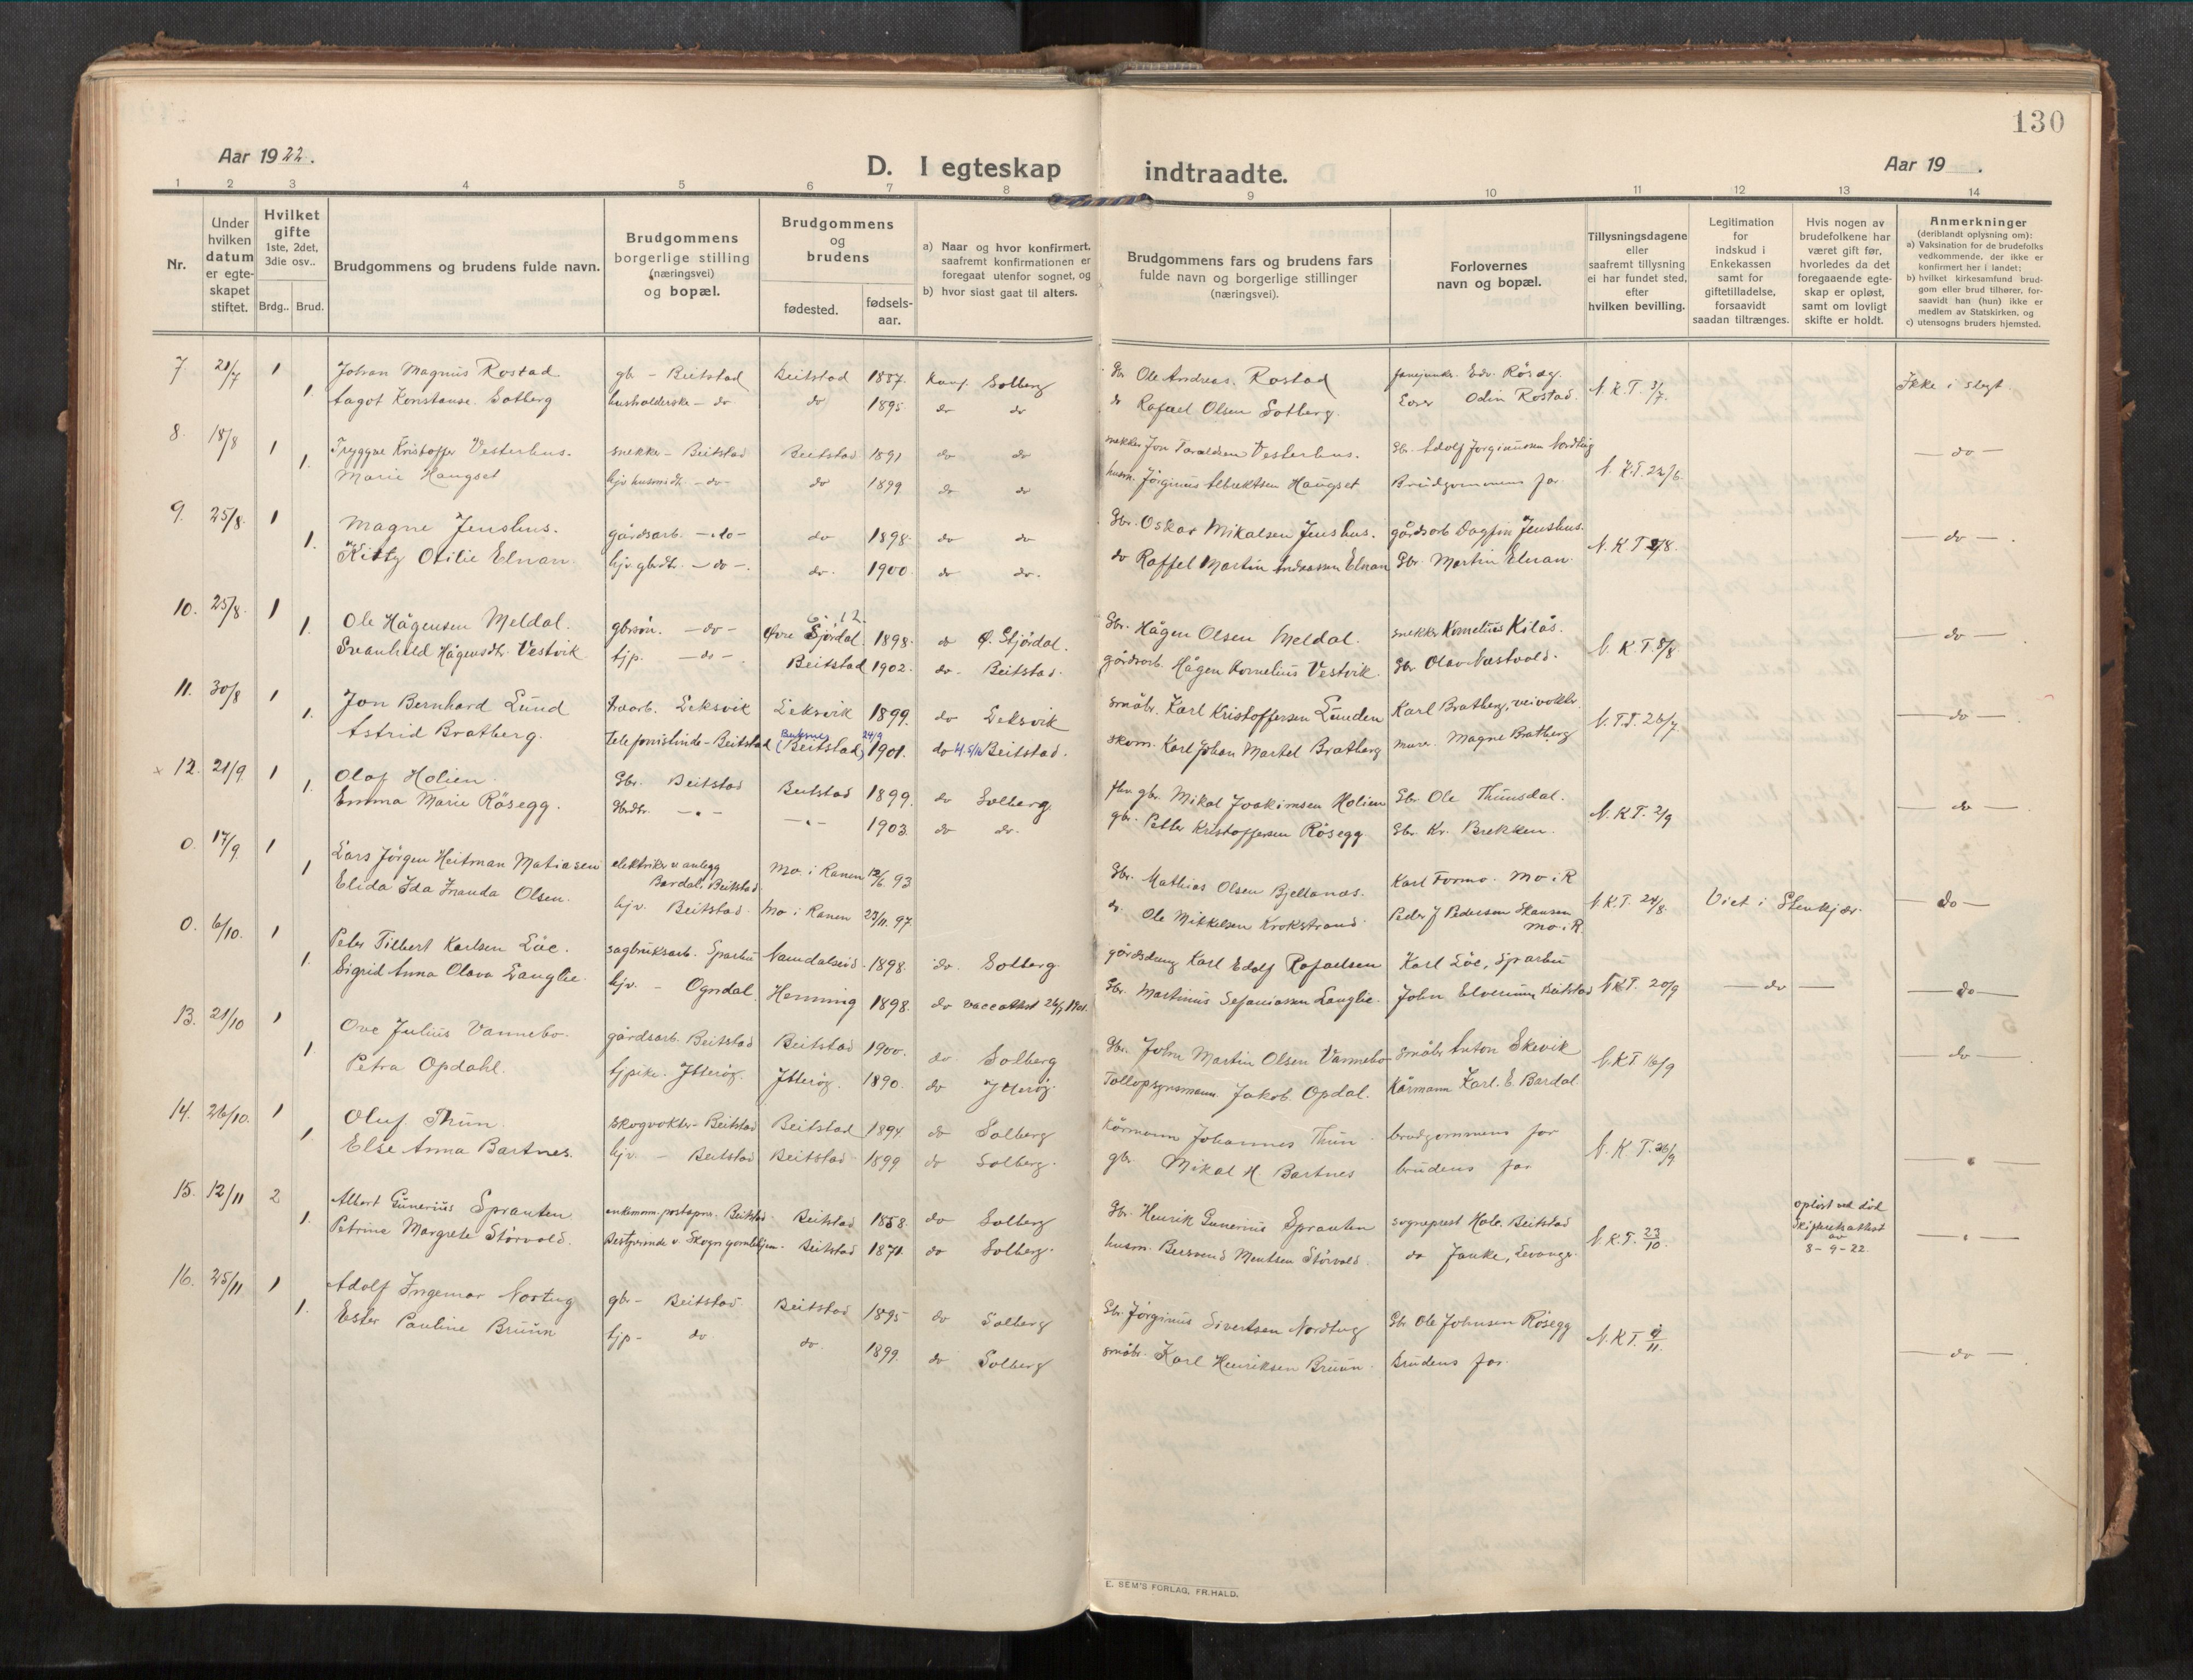 130
Aar 1922.
D. I egteskap indtraadte.
Aar 19 .
1 2 3 4 5 6 7 8 9 10 11 12 13 14
Nr.
Under hvilken datum er egteskapet stiftet.
Hvilket gifte 1ste, 2det, 3die osv..
Brdg.. Brud.
Brudgommens og brudens fulde navn.
Brudgommens borgerlige stilling (næringsvei) og bopæl.
Brudgommens og brudens
fødested. fødselsaar.
a) Naar og hvor konfirmert, saafremt konfirmationen er foregaat utenfor sognet, og
b) hvor sidst gaat til alters.
Brudgommens fars og brudens fars fulde navn og borgerlige stillinger (næringsvei).
Forlovernes navn og bopæl.
Tillysningsdagene eller saafremt tillysning ei har fundet sted, efter hvilken bevilling.
Legitimation for indskud i Enkekassen samt for giftetilladelse, forsaavidt saadan tiltrænges.
Hvis nogen av brudefolkene har været gift før, hvorledes da det foregaaende egteskap er opløst, samt om lovligt skifte er holdt.
Anmerkninger (deriblandt oplysning om):
a) Vaksination for de brudefolks vedkommende, der ikke er konfirmert her i landet;
b) hvilket kirkesamfund brudgom eller brud tilhører, forsaavidt han (hun) ikke er medlem av Statskirken, og
c) utensogns bruders hjemsted.
7 21/7 1 Johan Magnus Rostad gb - Beitstad Beitstad 1887. Konf. Solberg Gbr Ole Andreas Rostad Edv. Røseg. N.K.T. 3/7. Ikke i slegt.
1. Aagot Konstanse Solberg husholderske - do do 1895 do do do Rafael Olsen Solberg. Odin Rostad.
8. 18/8 1 Tryggve Kristoffer Vesterhus. snekker - Beitstad Beitstad 1891 do do snekker Jon Taraldsen Vesterhus. Gbr. Adolf Jorginussen Nordtug N.K.T. 22/6. - do -
1. Marie Haugset hjv husmdtr. - do - do 1899 do do husm. Jørginus Albrektsen Haugset Brudgommens far
9. 25/8. 1 Magne Jenshus. gårdsarb. - do - do 1898. do do Gbr. Oskar Mikalsen Jenshus. gårdsarb Dagfin Jenshus. N.K.T 2/8. - do - .
1. Kitty Otilie Elnan. hjv. gbdtr. - do - . do. 1900 do do. do Raffel Martin Andreassen Elnan Gbr. Martin Elnan.
10. 25/8. 1 Ole Hågensen Meldal. gbrsøn. - do - Øvre Stjørdal. 1898. do Ø. Stjørdal. Gbr. Hågen Olsen Meldal. snekker Kornelius Kilås. N.K.T. 8/8 - do -
1. Svanhild Hågensdtr. Vestvik tjp. - do - . Beitstad 1902. do - Beitstad. gårdsarb. Hågen Kornelius Vestvik. Gbr. Olav Næstvold.
11. 30/8 1 Jon Bernhard Lund Leksvik Leksvik 1899. do Leksvik småbr. Karl Kristoffersen Lunden Karl Bratberg, veivokter N.T.T. 26/7. - do -
1. Astrid Bratberg. telefonistinde - Beitstad (Beitstad) 24/9 1901. do Beitstad. skom. Karl Johan Martel Bratberg murer. Magne Bratberg
x 12. 21/9. 1 Olaf Holien. Gbr. Beitstad Beitstad 1899. do Solberg. gbr. Mikal Joakimsen Holien Gbr Ole Thunsdal. N.K.T. 2/9 - do -
1. Emma Marie Røsegg. Gbrdtr. - " - - " - 1903 do do. gbr. Petter Kristoffersen Røsegg Gbr. Kr. Brekken.
0. 17/9. 1 Lars Jørgen Heitman Matiasen elektriker v anlegg Bardal, Beitstad. Mo i Ranen 12/6. 93 Gbr. Mathias Olsen Bjellanes. Karl Formo. Mo i R N.K.T. 24/8. Viet i Stenkjær. - do -
1 Elida Ida Franda Olsen. hjv. Beitstad. Mo i Ranen 23/11. 97. do. Ole Mikkelsen Krokstrand Peder J Pedersen Skansen Mo i R
0. 6/10. 1 Peter Tilbert Karlsen Løe. sagbruksarb. Sparbu Namdalseid. 1898. do. Solberg. gårdsdreng Karl Edolf Rafaelsen Karl Løe, Sparbu N.K.T. 20/9 - do - - do -
1. Sigrid Anna Olava Langlie. hjv. - Ogndal. Henning 1898. do vaccattest Gbr. Martinus Sefaniassen Langlie. John Elverum Beitstad
13. 21/10 1 Ove Julius Vannebo. gårdsarb. Beitstad Beitstad 1900. do. Solberg Gbr. John Martin Olsen Vannebo småbr Anton Skevik N.K.T 16/9 - do -
1. Petra Opdahl. tjpike. Ytterøy. Ytterøy. 1890. do Ytterøy. Tollopsynsmann. Jakob Opdal. Kårmann Karl. E. Bardal
14. 26/10. 1 Oluf Thun. skogvokter - Beitstad Beitstad 1894. do Solberg Kårmann Johannes Thun. brudgommens far N.K.T. 26/9 - " -
1. Else Anna Bartnes. hjv. - Beitstad Beitstad 1899 do Solberg. gbr Mikal H Bartnes brudens far
15. 12/11 2 Albert Gunerius Sprauten enkemann. postapn. Beitstad. Beitstad 1858. do Solberg Gbr. Henrik Gunerius Sprauten sogneprest Beitstad N.K.T. 23/10. opløst ved død Skifteretsattest av 8-9-22. - " -
1. Petrine Margrete Størvold. Bestyrerinde v. Skogn gamlehjem. Beitstad 1871. do Solberg. husm. Mentsen Størvold. do Janke, Levanger
16. 25/11 1 Adolf Ingemar Nortug gbr - Beitstad. Beitstad 1895 do Solberg Gbr. Jørginus Sivertsen Nordtug Gbr Ole Johnsen Røsegg N.K.T. 9/11. - do -
1. Ester Pauline Bruun tjp - do. do. 1899. do Solberg småbr. Karl Henriksen Bruun. Brudens far.
E. SEM'S FORLAG, FR.HALD.